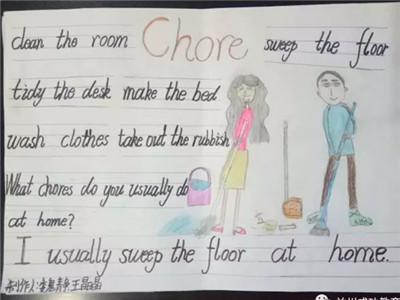 clean the room Chore sweep the floor
tidy the desk make the bed
wash clothes take out the rubbish
What chores do you usually do
at home?
I usually sweep the floor at home.
制作人:
王晶晶